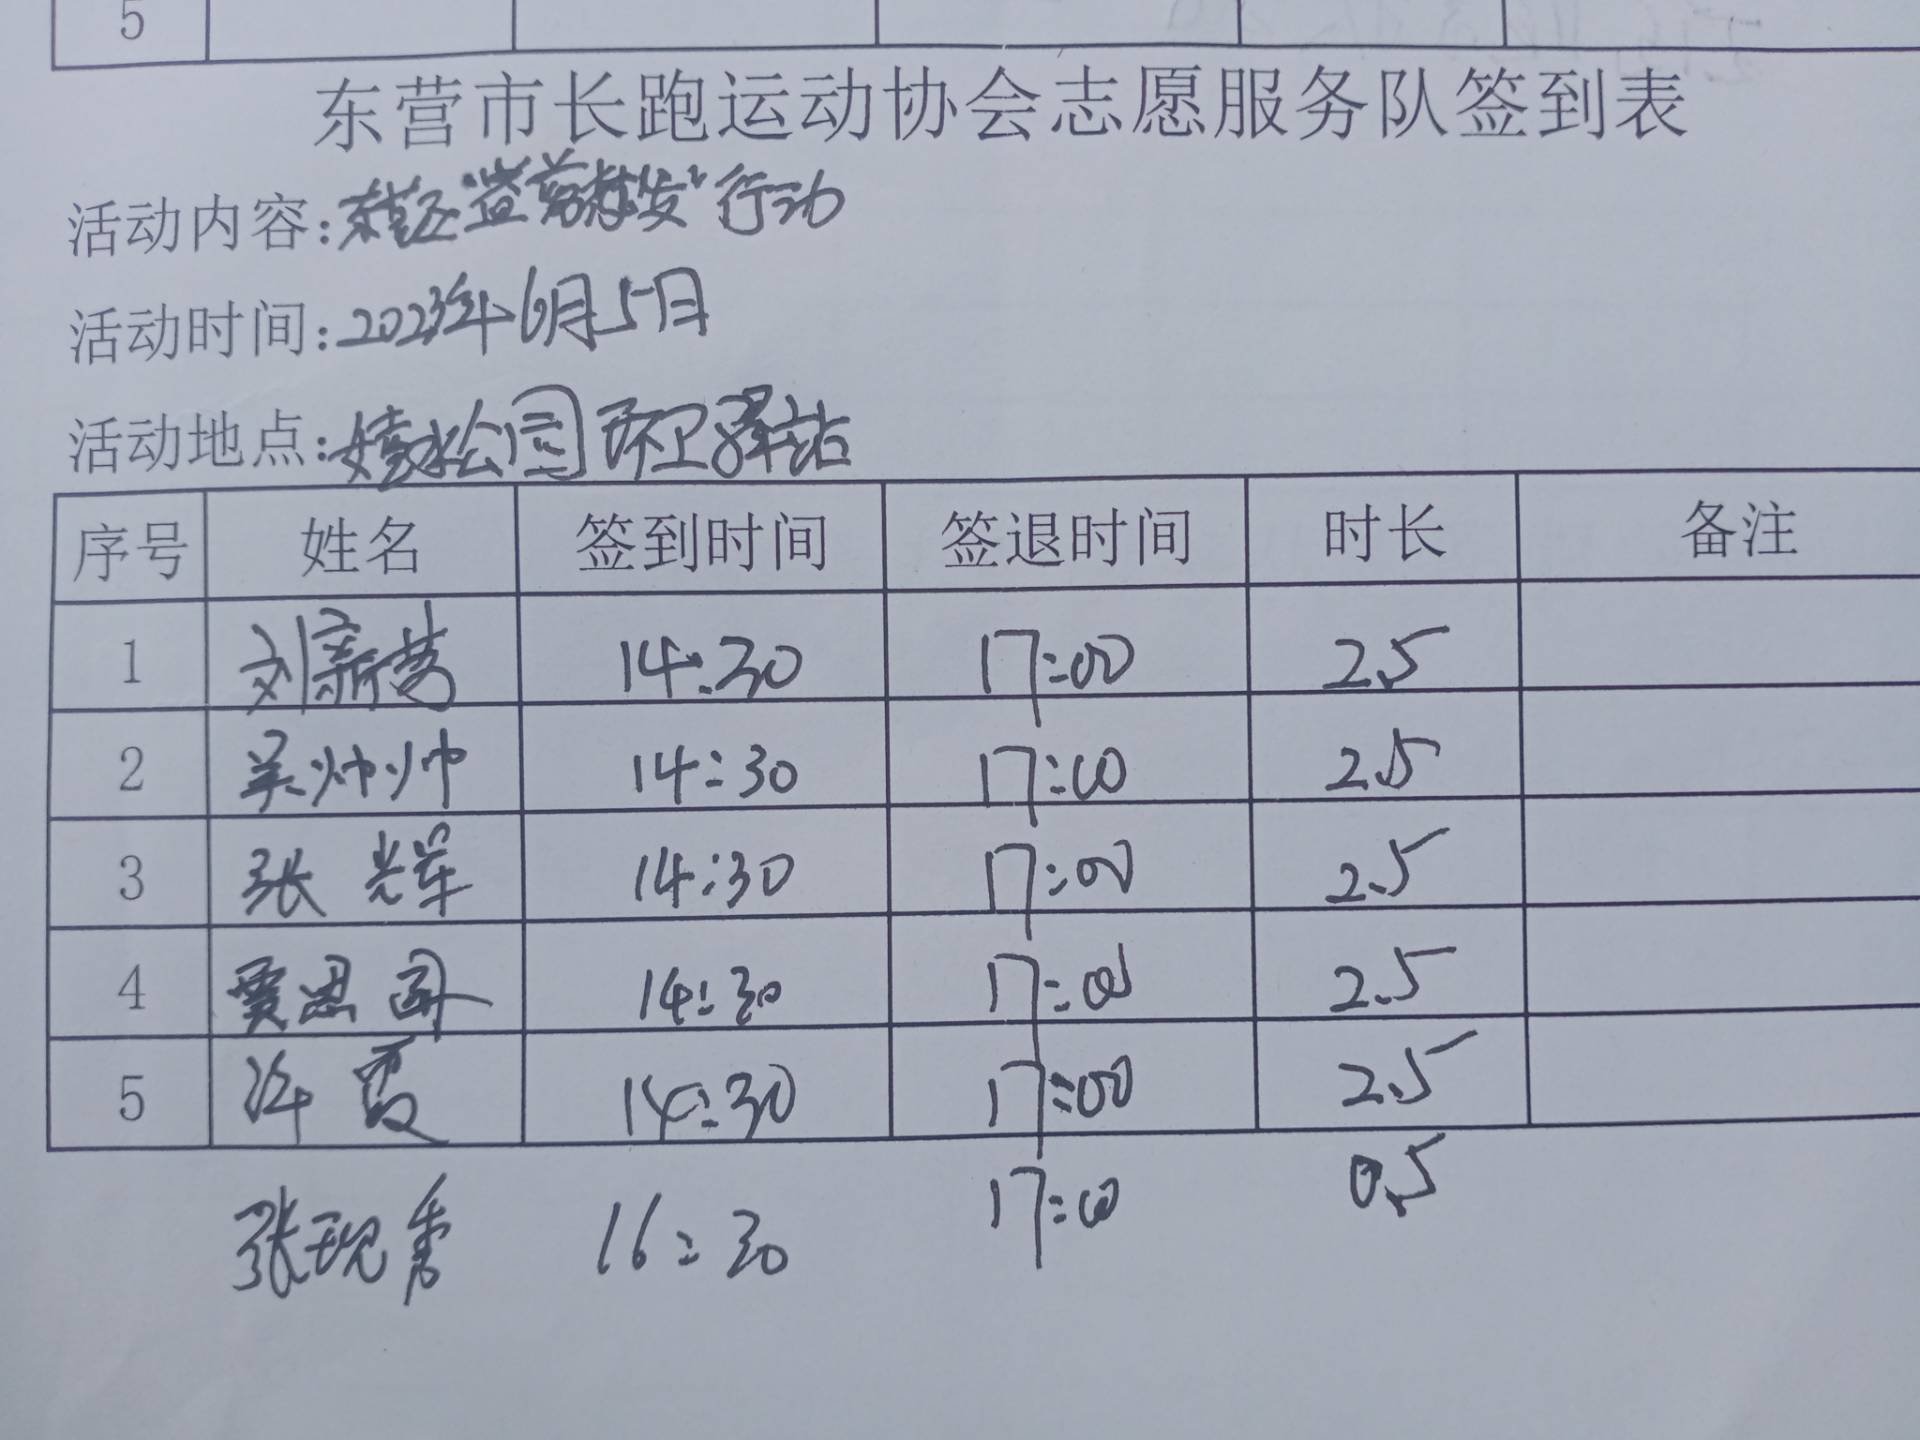 5
东营市长跑运动协会志愿服务队签到表
活动内容: 行动
活动时间: 2023年6月5日
活动地点: 公园环卫驿站
序号 姓名 签到时间 签退时间 时长 备注
1 刘新 14:30 17:00 2.5
2 吴帅帅 14:30 17:00 2.5
3 张辉 14:30 17:00 2.5
4 贾思 14:30 17:00 2.5
5 许霞 14:30 17:00 2.5
张现秀 16:30 17:00 0.5